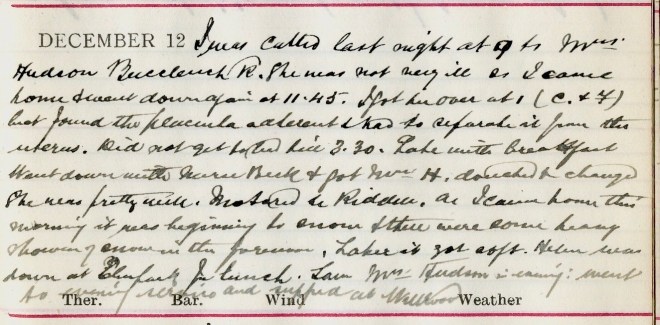 DECEMBER 12 I was called last night at 9 to Mrs.
Hudson Buccleuch R. She was not very ill so I came
home & went down again at 11.45. I got her over at 1 (C. & F)
but found the placenta adherent & had to separate it from the
uterus. Did not get to bed till 3.30. Late with breakfast
Went down with Nurse Beck & got Mrs H. douched & changed
She was pretty well. Motored to Riddell. As I came home this
morning it was beginning to snow & there were some heavy
showers of snow in the forenoon, Later it got soft. Helen was
down at Elmpark for lunch. Saw Mrs Hudson in evening: went
to evening service and supped at Wellwood
Ther. Bar. Wind Weather